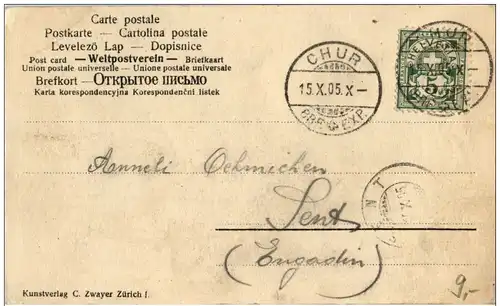 Carte postale
Postkarte — Cartolina postale
Levelező Lap — Dopisnice
Post card —Weltpostverein— Briefkaart
Union postale universelle — Unione postale universale
Brefkort —Открытое письмо
Karta korespondencyjna Korespondenční listek
CHUR
15.X.05.X—
BRF. EXP.
CHUR
HELVETIA
5
Anneli Oehmichen
Sent
(Engadin)
SENT
Kunstverlag C. Zwayer Zürich I.
9,-